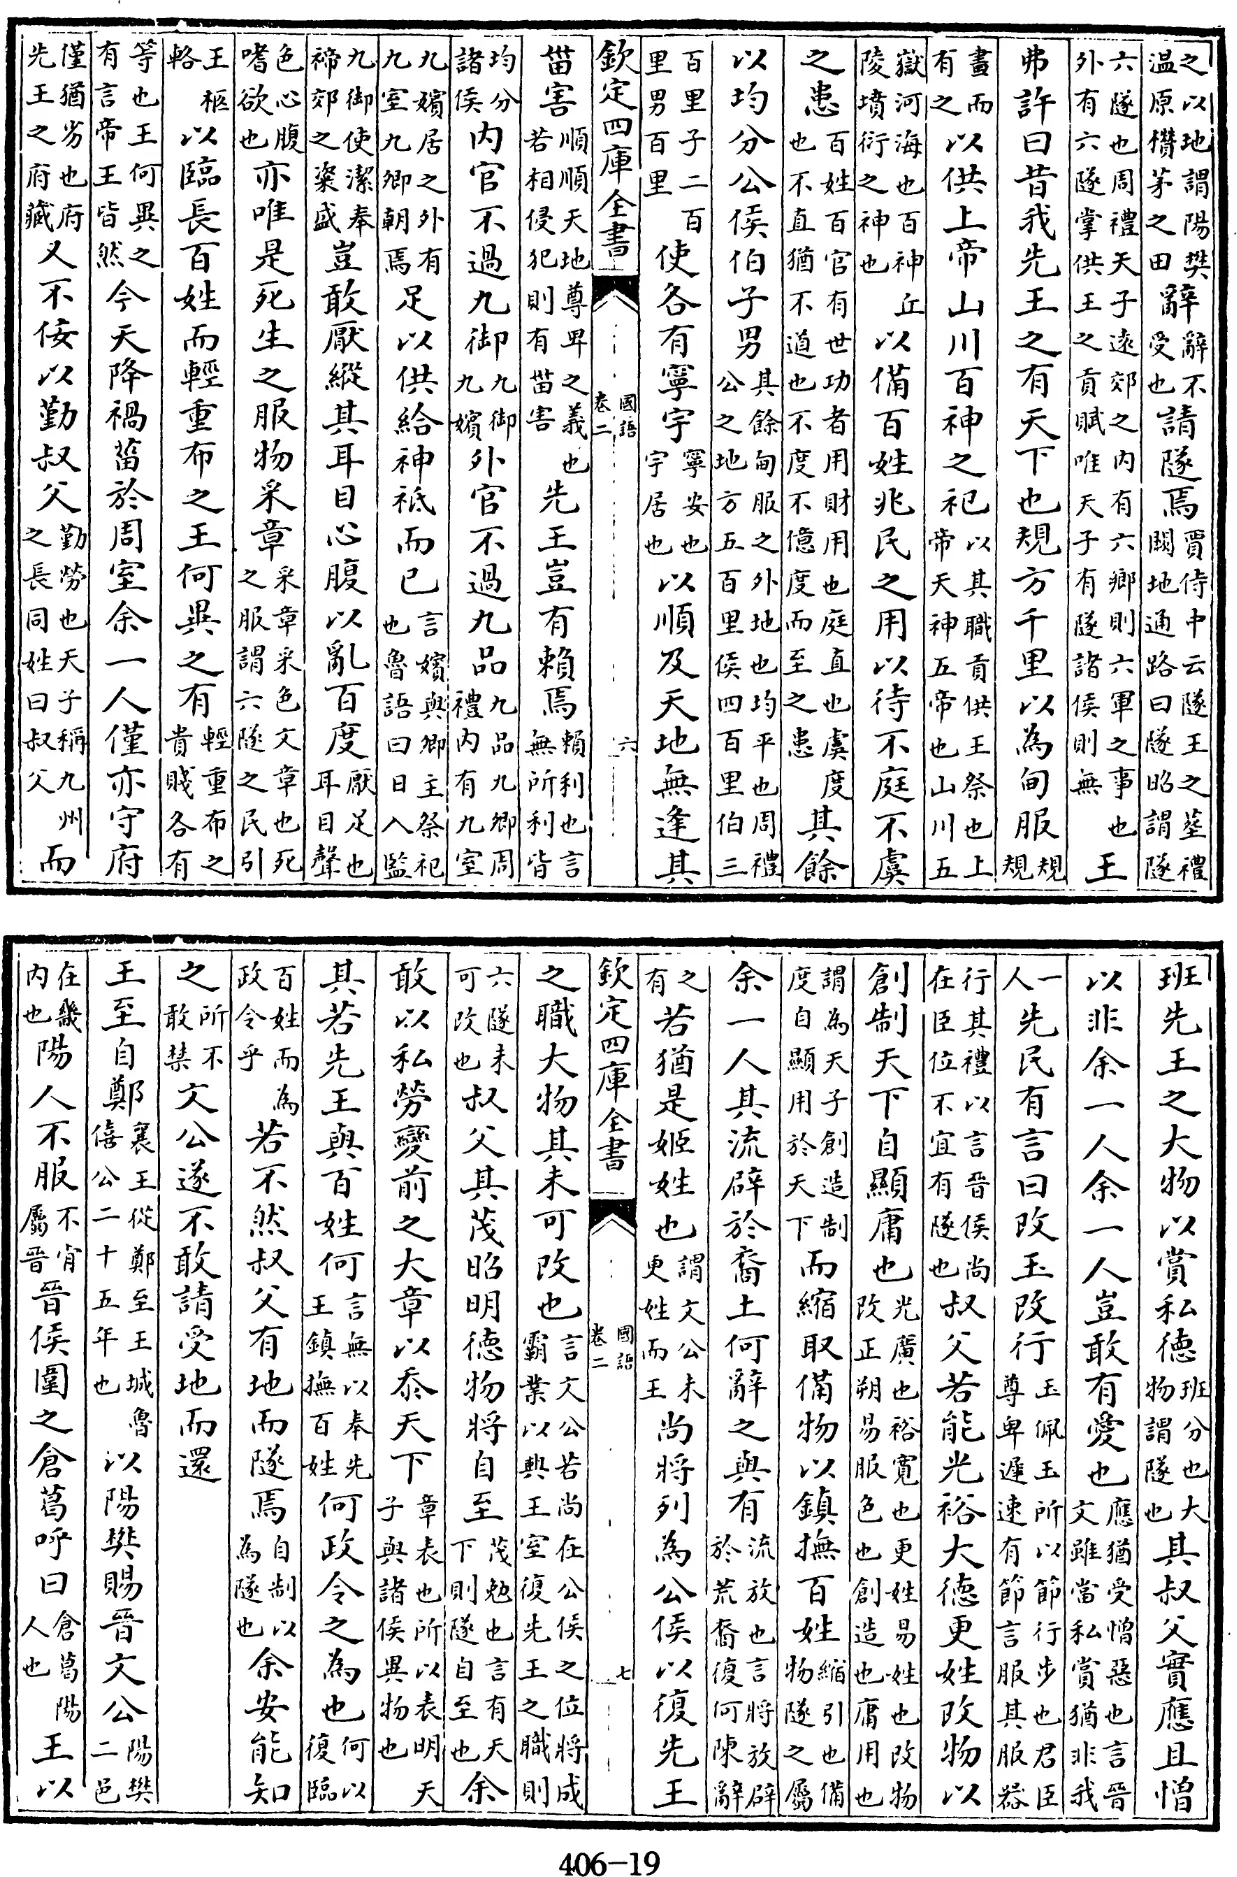 之以地謂陽樊温原欑茅之田辭辭不受也請隧焉賈侍中云隧王之塟禮闕地通路曰隧昭謂隧
六隧也周禮天子逺郊之内有六鄉則六軍之事也外有六隧掌供王之貢賦唯天子有隧諸侯則無王
弗許曰昔我先王之有天下也規方千里以為甸服規規
畫而有之以供上帝山川百神之祀以其職貢供王祭也上帝天神五帝也山川五
嶽河海也百神丘陵墳衍之神也以備百姓兆民之用以待不庭不虞
之患百姓百官有世功者用財用也庭直也虞度也不直猶不道也不度不億度而至之患其餘
以均分公侯伯子男其餘甸服之外地也均平也周禮公之地方五百里侯四百里伯三
百里子二百里男百里使各有寧宇寧安也宇居也以順及天地無逢其
欽定四庫全書 國語卷二 六
菑害順順天地尊卑之義也若相侵犯則有菑害先王豈有賴焉賴利也言無所利皆
均分諸侯内官不過九御九御九嬪外官不過九品九品九卿周禮内有九室
九嬪居之外有九室九卿朝焉足以供給神祇而已言嬪與卿主祭祀也魯語曰日入監
九御使潔奉禘郊之粢盛豈敢厭縱其耳目心腹以亂百度厭足也耳目聲
色心腹嗜欲也亦唯是死生之服物采章采章采色文章也死之服謂六隧之民引
王柩輅以臨長百姓而輕重布之王何異之有輕重布之貴賤各有
等也王何異之有言帝王皆然今天降禍菑於周室余一人僅亦守府
僅猶劣也府先王之府藏又不佞以勤叔父勤勞也天子稱九州之長同姓曰叔父而
班先王之大物以賞私德班分也大物謂隧也其叔父實應且憎
以非余一人余一人豈敢有愛也應猶受憎惡也言晉文雖當私賞猶非我
一人先民有言曰改玉改行玉佩玉所以節行步也君臣尊卑遲速有節言服其服器
行其禮以言晉侯尚在臣位不宜有隧也叔父若能光裕大德更姓改物以
創制天下自顯庸也光廣也裕寛也更姓易姓也改物改正朔易服色也創造也庸用也
謂為天子創造制度自顯用於天下而縮取備物以鎮撫百姓縮引也備物隧之屬
余一人其流辟於裔土何辭之與有流放也言將放辟於荒裔復何陳辭
之有若猶是姬姓也謂文公未更姓而王尚將列為公侯以復先王
欽定四庫全書 國語卷二 七
之職大物其未可改也言文公若尚在公侯之位將成霸業以興王室復先王之職則
六隧未可改也叔父其茂昭明德物將自至茂勉也言有天下則隧自至也余
敢以私勞變前之大章以忝天下章表也所以表明天子與諸侯異物也
其若先王與百姓何言無以奉先王鎮撫百姓何政令之為也何以復臨
百姓而為政令乎若不然叔父有地而隧焉自制以為隧也余安能知
之所不敢禁文公遂不敢請受地而還
王至自鄭襄王從鄭至王城魯僖公二十五年也以陽樊賜晉文公陽樊二邑
在畿内也陽人不服不肯屬晉晉侯圍之倉葛呼曰倉葛陽人也王以
406-19